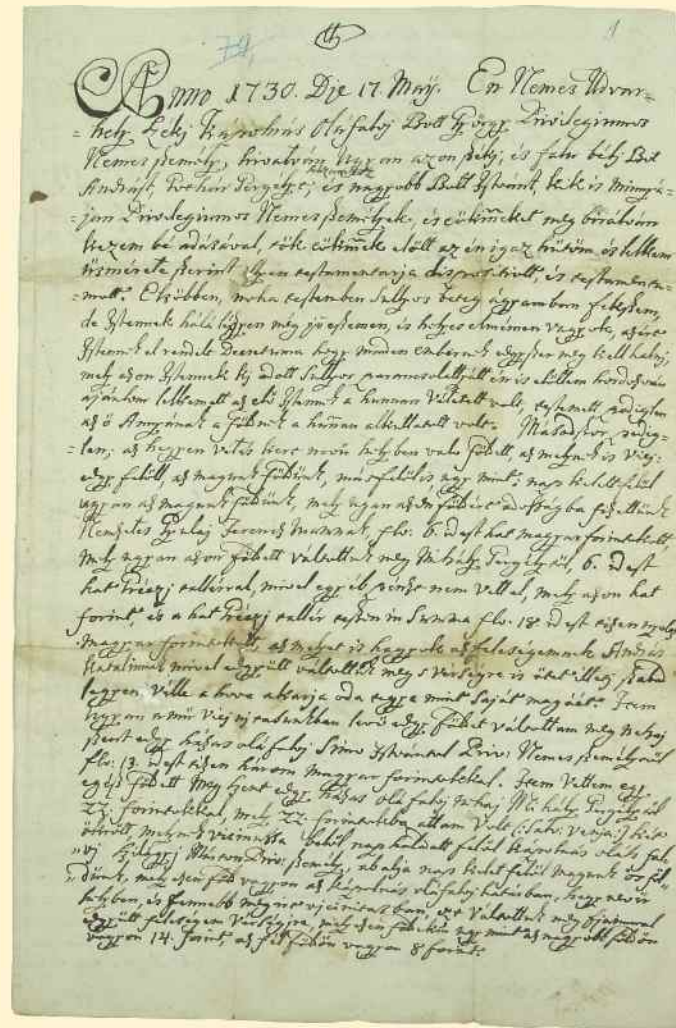 79,
1
Anno 1730. Die 17. Maÿ. En Nemes Udvar=
=hely Székj Kápolnás Oláhfaluj Bott György Privilegiumos
Nemes személy, hivatván ugyan azon székj, és falu bélj Bot
Andrást, Gergelyt; és nagyobb Bott Istvánt, kik is minnyá=
=jan Privilegiumos Nemes személyek, és eökiemeket meg biráltván
kezem bé adásával, eök eökiemek elött az én igaz hütöm és lelkem
üsmérete szerint illyen testamentaria dispositiott, és testamentu=
=mott. Elsöbben, noha testemben sullyos beteg ágyamban fekszem,
de Istennek hálá légyen még jó eszemen, és hellyes elmémen vagyok, azért
Istennek el rendelt Decretuma hogy minden embernek egyszer meg kell halnj,
mely azon Istennek sullyos parancsolattyátt én is elöttem hordozván
ajánlom lelkemett az elö Istennek a kitt volt, testemett pediglen
az ö Annyának a Földnek a honnan alkottatott volt. Másodszor, pedig=
=len; az hegyen velös kere nevü helyben való Földett, az melynek is vicj:
egy felöll, az magunk Földünk, más felöl is, ugy mint: nap kelett felöl
ugyan az magunk földünk, mely ugyan azon földért adósságba
Nemzetes Gyulaj Ferencz Uramnak, flo: 6. idest hat magyar forintokatt,
mely ugyan azon Földett váltottuk meg Mihály Gergelytöl, 6. idest
hat talérral, mivel egyéb pénzt nem vett el, mely azon hat
forint, és a hat tallér teszen in Summa flo: 18 idest tizen nyolcz
magyar forintokatt, az melyet is hagyok az feleségemnek András
Katalinnak mivel együtt váltottuk meg s verségre is ötet illetj, szabad
légyen véle a hova akarja oda tegye mint saját magáét. Item
ugyan a mü levö egy Földet váltottam meg nehaj
Szent egy házas oláhfaluj Simo Istvántol Priv: Nemes személytül
flo: 13. idest tizen három magyar forintokkal. Item Vettem egy
egész Földett meg Szent egy házas oláhfaluj nehaj Mihály Gergelytül
22. forintokkal, mely 22. forintokba attam volt (: Salv: venia:) két
ökrött, melynek vicinussa belöl nap haladatt felöl Kápolnás oláh fal=
=uj Márton Priv: személy, abalja nap kelet felöl magunk ös föl=
=dünk, mely ezen föld vagyon az Kápolnás oláhfaluj határban, hegy nevü
helyben, és fennebb megirt vicinitásban, ezt váltottuk meg ujjannal
együtt feleségem verségire, mely ezen földeken ugy mint az nagyobb földön
vagyon 14. forint, az fél földön vagyon 8 forint.